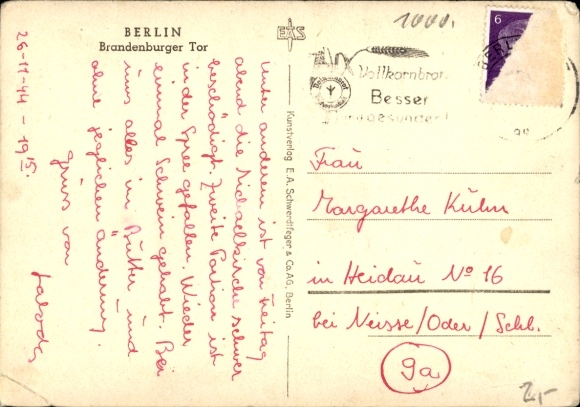 BERLIN
Brandenburger Tor
EAS
26-11-44 - 19 15.
Unter anderem ist von Freitag
abend die Michaelkirche schwer
beschädigt. Zweite Portion ist
in der Spree gefallen. Wieder
einmal Schwein gehabt. Bei
uns alles in Butter und
ohne jeglichen Änderung.
Gruss von
Kunstverlag E. A. Schwerdtfeger & Co. AG. Berlin
1000.
6
Vollkornbrot
Besser
und gesünder!
Frau
Margarethe Kühn
in Heidau No 16
bei Neisse/Oder/Schl.
9a
2,-